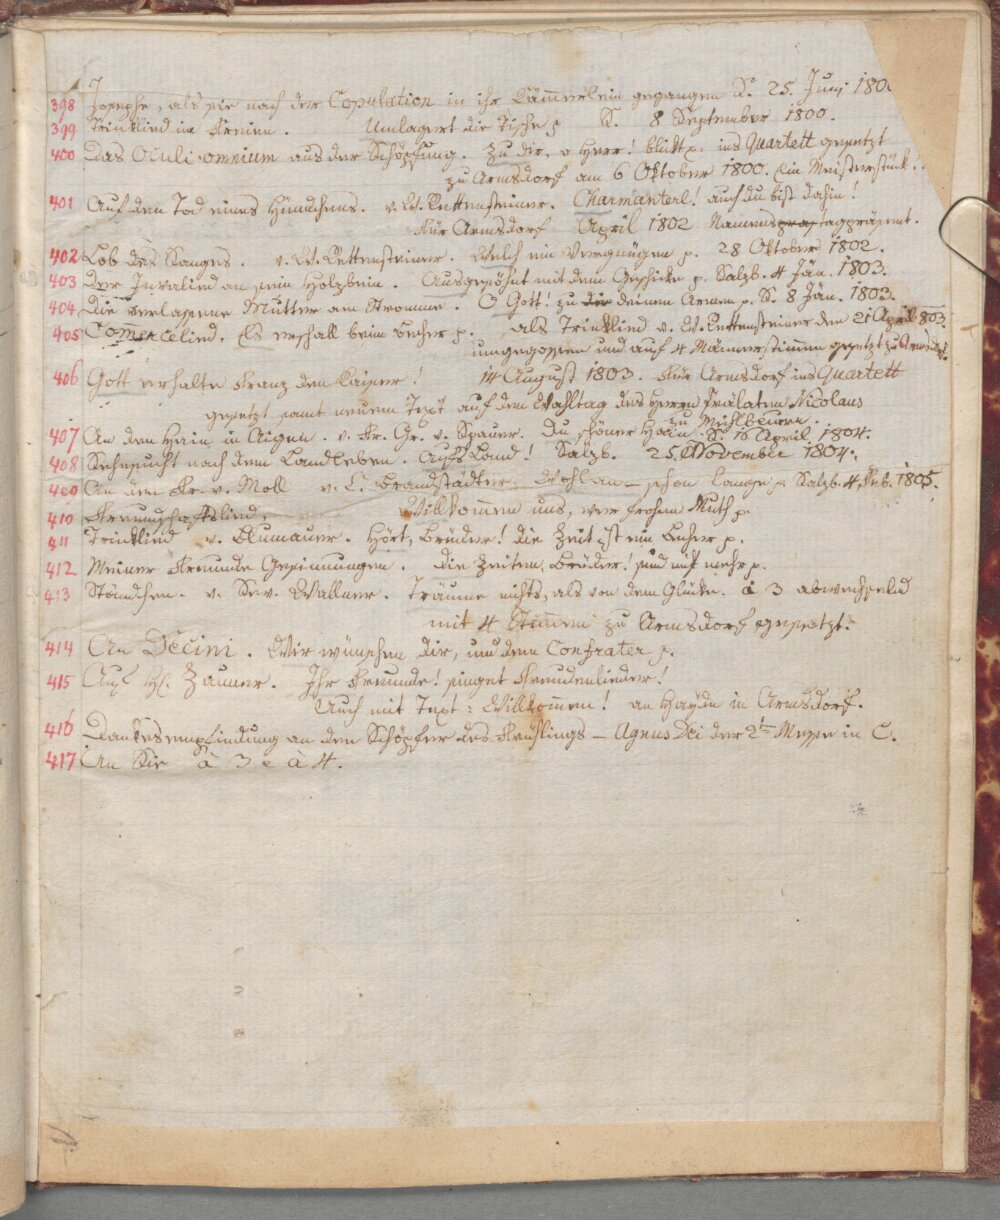 398 Josephe, als sie nach der Copulation in ihr Kämmerlein gegangen S. 25. Juny 180
399 Trinklied im Freien. Umlagert die Tische p S. 8 September 1800.
400 Das Oculi omnium aus der Schöpfung. Zu dir, o Herr! blickt p. ins Quartett gesetzt
zu Armsdorf am 6 Oktober 1800. Ein Meisterstück!.
401 Auf den Tod eines Hündchens. v. W. Rettensteiner. Charmanterl! auch du bist dahin!
Für Armsdorf April 1802 Namenstagpräsent.
402 Lob des Sanges. v. W. Rettensteiner. Welch ein Vergnügen p. 28 Oktober 1802.
403 Der Invalied an sein Holzbein. Ausgesöhnt mit dem Geschicke p. Salzb. 4 Jän. 1803.
404 Die verlassene Mutter am Strome. O Gott! zu die deinen Armen p. S. 8 Jän. 1803.
405 Commercelied. Es erschall beim Becher p. als Trinklied v. W. Rettensteiner den 21 April 803.
umgegossen und auf 4 Männerstimmen gesetzt zu Armsdorf.
406 Gott erhalte Franz den Kaiser! 14 August 1803. Für Armsdorf ins Quartett
gesetzt samt neuem Text auf den Wahltag des Herrn Prälaten Nicolaus
zu Michlbeuern.
407 An den Hain in Aigen. v. Fr. Gr. v. Spaur. Du schöner Hain S. 16 April 1804.
408 Sehnsucht nach dem Landleben. Aufs Land! Salzb. 25. November 1804.
409 An den Fr. v. Moll v. C. Brandstädter. Wohlan - schon lange p Salzb. 4. Feb. 1805.
410 Freundschaftslied. Willkommen uns, wer frohem Muth p.
411 Trinklied v. Blumauer. Hört, Brüder! die Zeit ist ein Becher p.
412 Meiner Freunde Gesinnungen. Die Zeiten, Brüder! sind nicht mehr p.
413 Ständchen. v. Sev. Wallner. Träume nichts, als von dem Glücke. à 3 abwechselnd
mit 4 Stimmen zu Armsdorf gesetzt.
414 An Decini. Wir wünschen dir, und dem Confrater p.
415 Auf H. Zauner. Ihr Freunde! singet Freudenlieder!
Auch mit Text: Willkommen! an Haydn in Armsdorf.
416 Dankesempfindung an den Schöpfer des Frühlings - Agnus Dei der 2ten Messe in C.
417 An Sie à 3 e à 4.